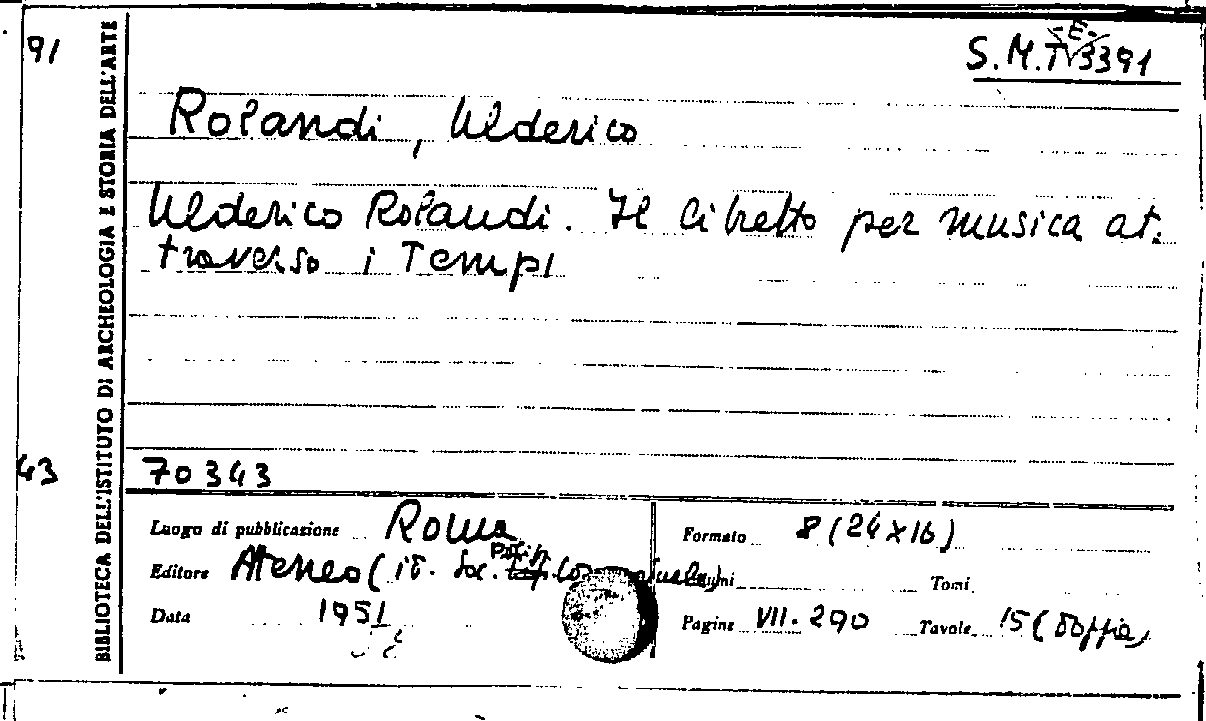 91
S.M.TV3391
-E-
Rolandi, Ulderico
Ulderico Rolandi. Il libretto per musica at.
traverso i Tempi
43
70343
BIBLIOTECA DELL'ISTITUTO DI ARCHEOLOGIA E STORIA DELL'ARTE
Luogo di pubblicazione Roma
Formato 8 (24x16)
Editore Ateneo (it. Soc.
Tomi
Data 1951
Pagine VII.290
Tavole 15 (doppia)